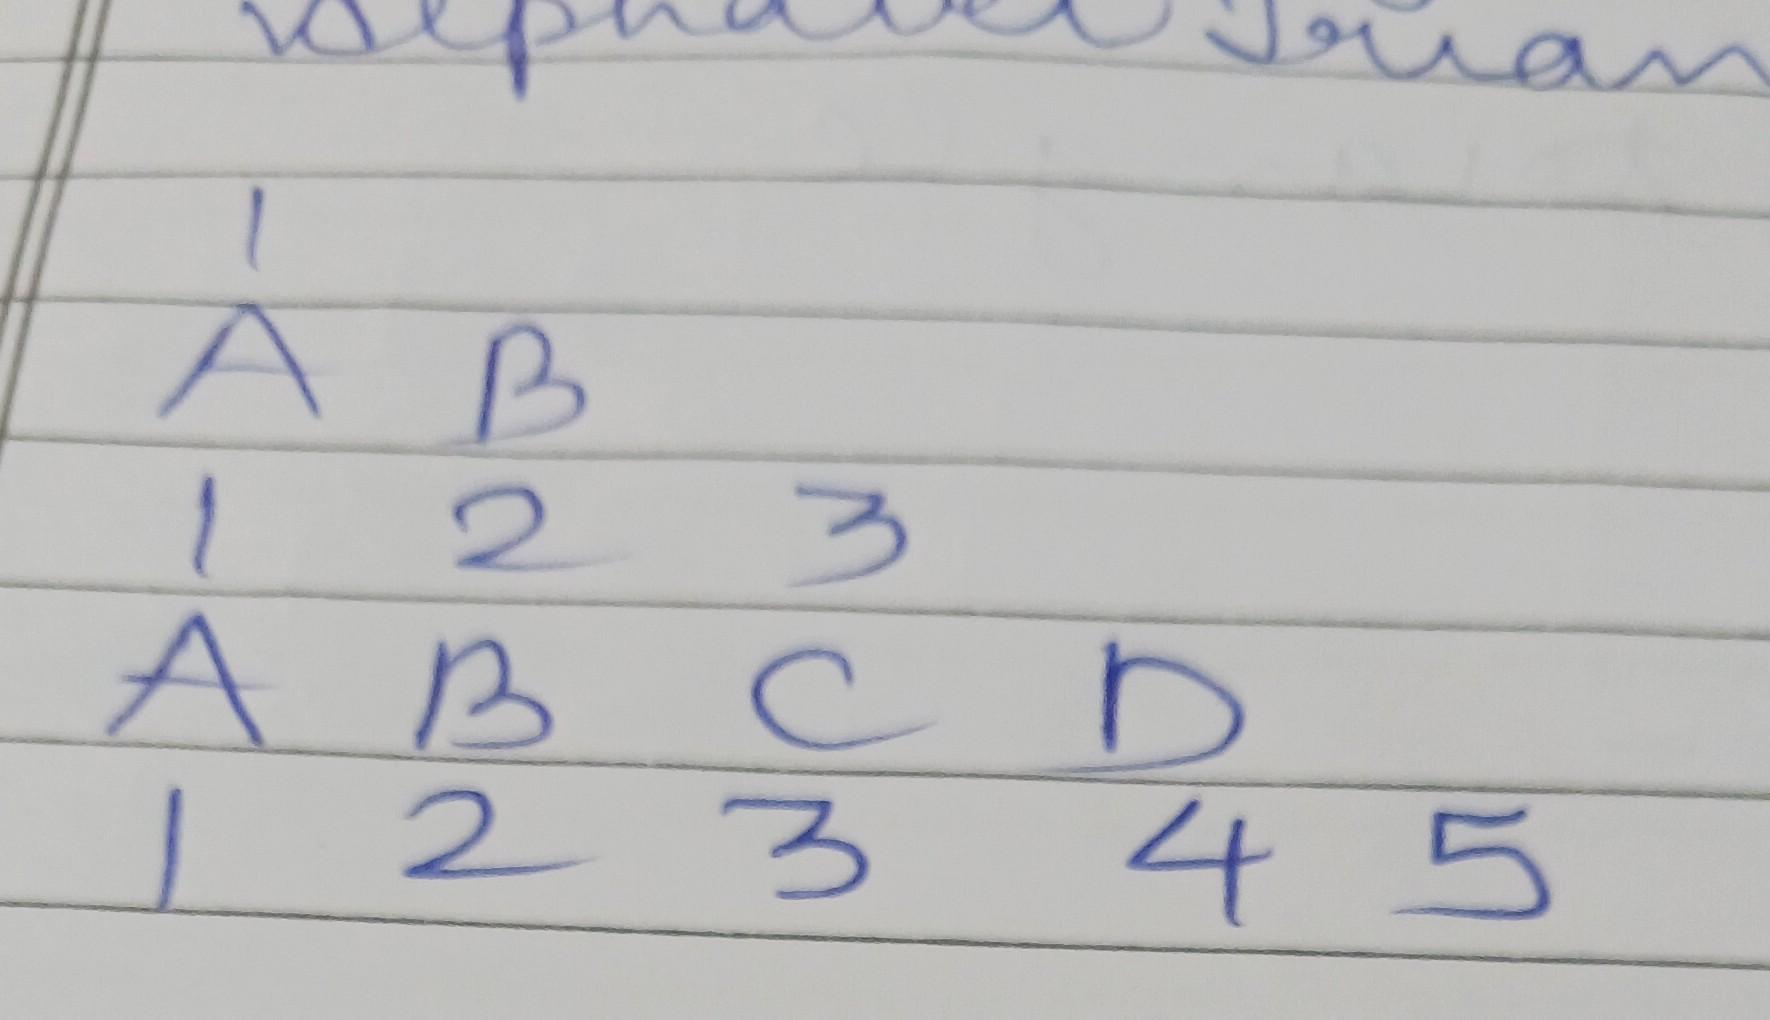 Alphabet Trian
1
A B
1 2 3
A B C D
1 2 3 4 5